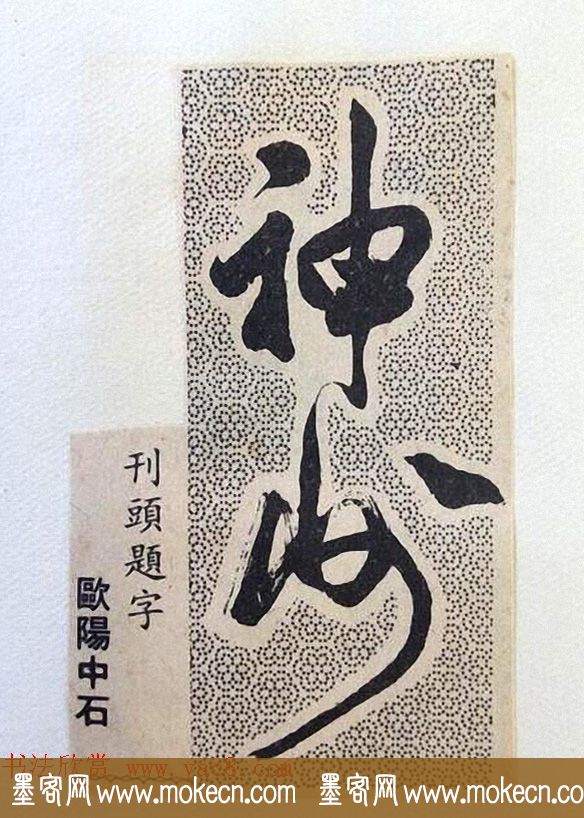 神州
刊頭題字
歐陽中石
书法欣赏 www.yac8.com
墨客网 www.mokecn.com 墨客网 www.mokecn.com